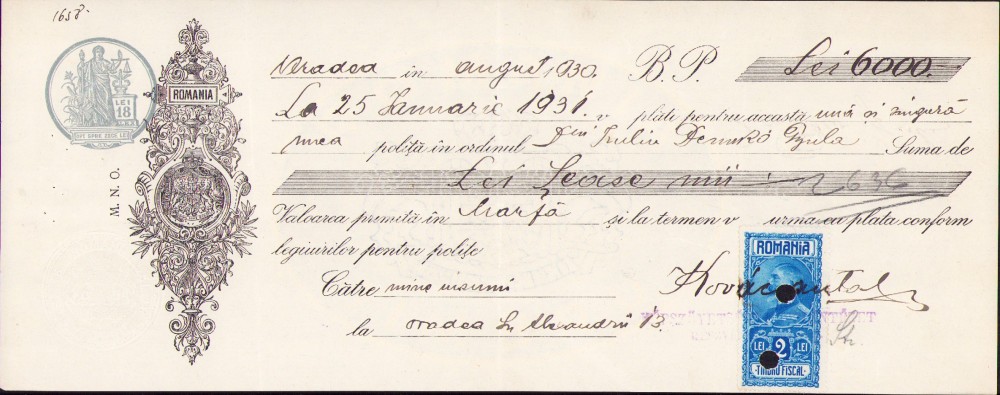 1658.
Oradea in august 1930. B. P. Lei 6000.
ROMANIA
LEI
18
La 25 Ianuarie 1931. v plăti pentru aceasta una și singură
mea poliță in ordinul Dlui Iuliu Demkó Gyula Suma de
Lei Șease mii 2636
M. N. O.
Valoarea primită in Marfă și la termen v urma ca plata conform
legiuirilor pentru polițe
ROMANIA
Către mine însumi Kovács Antal
la Oradea Str Alexandrii 13.
LEI 2 LEI
TIMBRU FISCAL